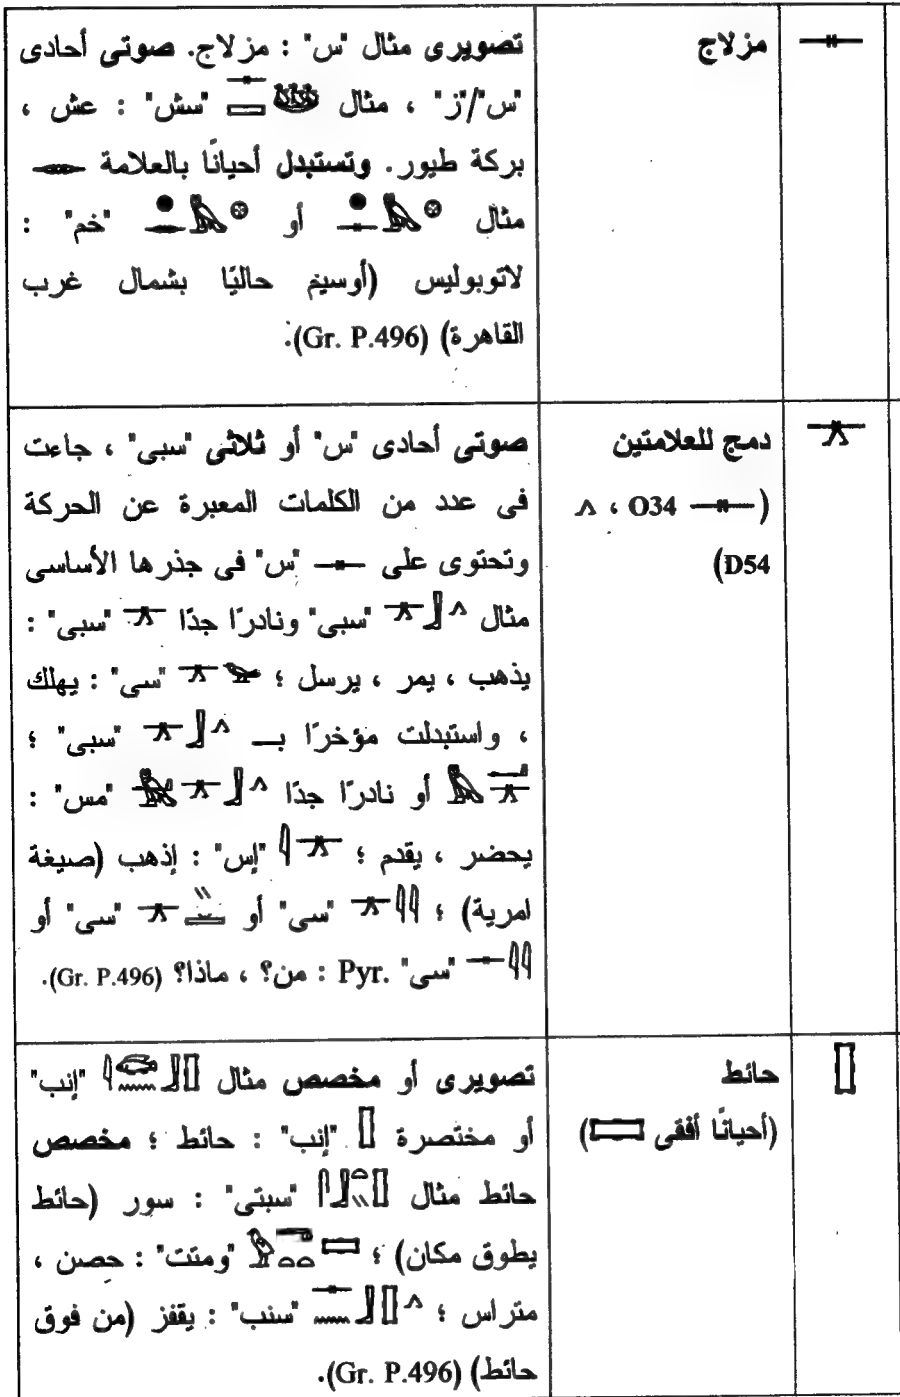 مزلاج
تصويرى مثال "س" : مزلاج. صوتى أحادى
"س"/"ز" ، مثال "سش" : عش ،
بركة طيور. وتستبدل أحيانًا بالعلامة
مثال أو "خم" :
لاتوبوليس (أوسيم حاليًا بشمال غرب
القاهرة) (Gr. P.496).
دمج للعلامتين
(O34 ،
D54)
صوتى أحادى "س" أو ثلاثى "سبى" ، جاءت
فى عدد من الكلمات المعبرة عن الحركة
وتحتوى على "س" فى جذرها الأساسى
مثال "سبى" ونادرًا جدًا "سبى" :
يذهب ، يمر ، يرسل ؛ "سى" : يهلك
، واستبدلت مؤخرًا بـ "سبى" ؛
أو نادرًا جدًا "مس" :
يحضر ، يقدم ؛ "إس" : إذهب (صيغة
امرية) ؛ "سى" أو "سى" أو
"سى" Pyr. : من؟ ، ماذا؟ (Gr. P.496).
حائط
(أحيانًا أفقى)
تصويرى أو مخصص مثال "إنب"
أو مختصرة "إنب" : حائط ؛ مخصص
حائط مثال "سبتى" : سور (حائط
يطوق مكان) ؛ "ومتت" : حصن ،
متراس ؛ "سنب" : يقفز (من فوق
حائط) (Gr. P.496).